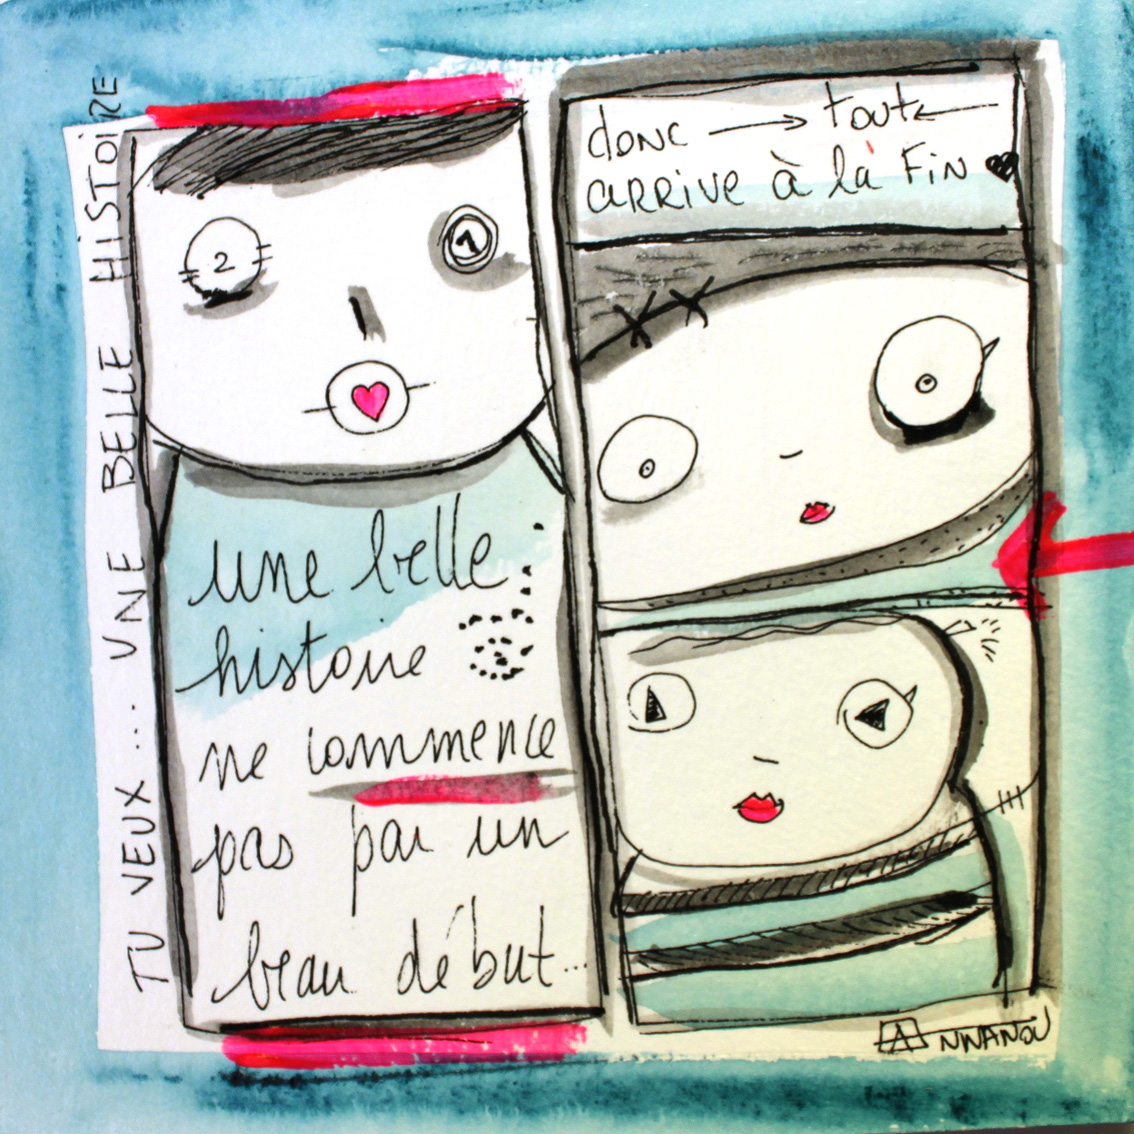 TU VEUX... UNE BELLE HISTOIRE
2
1
une belle
histoire
ne commence
pas par un
beau début...
donc → tout ←
ARRIVE à là FiN ♥
ANNANOU